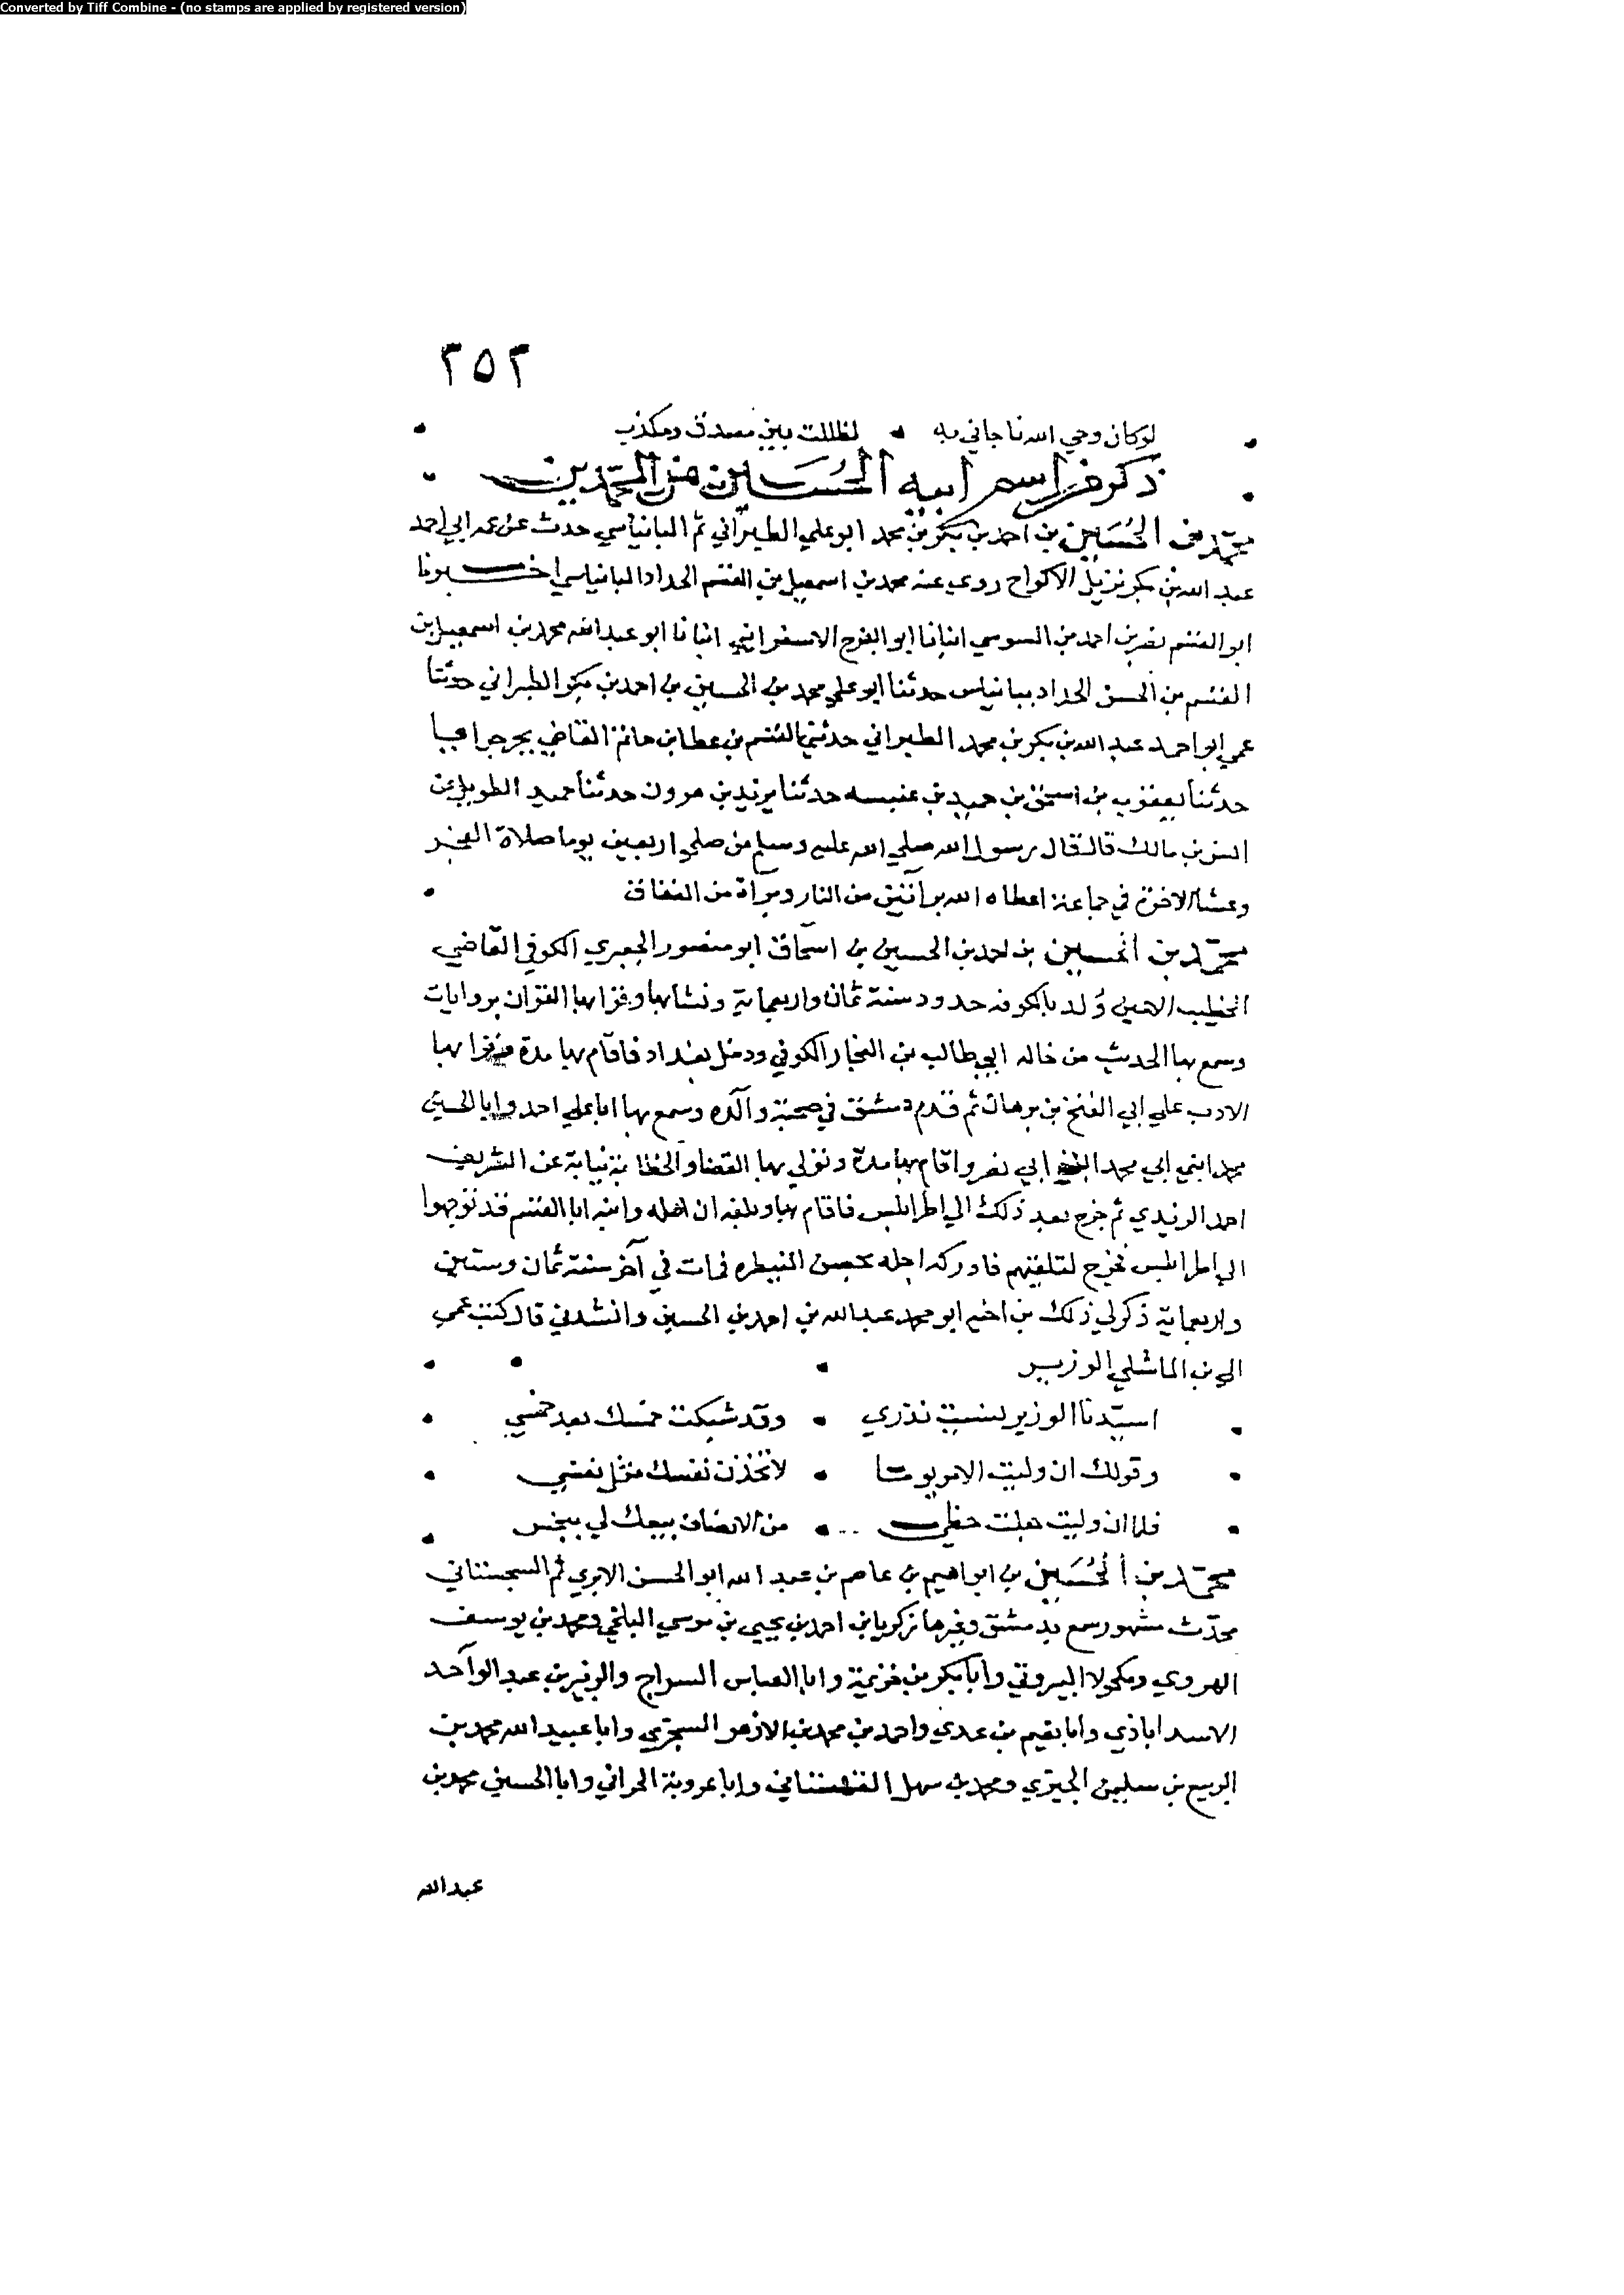 Converted by Tiff Combine - (no stamps are applied by registered version)
٢٥٢
لو كان وحي الله ناجاني به • لظللت بين مصدق ومكذب
ذكر من اسم ابيه الحسين من المحمدين
محمد بن الحسين بن احمد بن بكر بن محمد ابو علي الطبراني ثم البانياسي حدث عن عمه ابي احمد
عبد الله بن بكر نزيل الاكواخ روي عنه محمد بن اسمعيل بن القسم الحداد البانياسي اخبرنا
ابو القسم نصر بن احمد بن السوسي انبانا ابو الفرج الاسفرايني انبانا ابو عبد الله محمد بن اسمعيل بن
القسم بن الحسن الحداد ببانياس حدثنا ابو علي محمد بن الحسين بن احمد بن بكر الطبراني حدثنا
عمي ابو احمد عبد الله بن بكر بن محمد الطبراني حدثني القسم بن عطا بن حاتم القاضي بجرجرايا
حدثنا يعقوب بن اسحق بن حميد بن عنبسه حدثنا يزيد بن هرون حدثنا حميد الطويل عن
انس بن مالك قال قال رسول الله صلي الله عليه وسلم من صلي اربعين يوما صلاة الفجر
وعشا الاخرة في جماعة اعطاه الله برآتين من النار وبراة من النفاق
محمد بن الحسين بن احمد بن الحسين بن اسحاق ابو منصور الجعبري الكوفي القاضي
الخطيب الامين وُلد بالكوفه حدود سنة ثمان واربعماية ونشا بها وقرا بها القران بروايات
وسمع بها الحديث من خاله ابي طالب بن النجار الكوفي ودخل بغداد فاقام بها مدة وقرا بها
الادب علي ابي الفتح بن برهان ثم قدم دمشق في صحبة والده وسمع بها ابا علي احمد وابا الحسين
محمد ابني ابي محمد ابي نصر واقام بها مدة وتولي بها القضا والخطابة نيابة عن الشريف
احمد الزيدي ثم خرج بعد ذلك الي اطرابلس فاقام بها وبلغه ان اهله وابنه ابا القسم قد توجهوا
الي اطرابلس فخرج لتلقيهم فادركه اجله بحصن المنيطره فمات في آخر سنة ثمان وستين
واربعماية ذكر لي ذلك بن اخيه ابو محمد عبد الله بن احمد بن الحسين وانشدني قال كتب عمي
الي بن الماشلي الوزير
اسيدنا الوزير نسيت نذري • وقد شبكت خمسك بعد خمسي
وقولك ان وليت الامر يوما • لاتخذن نفسك مثل نفسي
فلما ان وليت جعلت حظي • من الانصاف بيعك لي ببخس
محمد بن الحسين بن ابراهيم بن عاصم بن عبد الله ابو الحسن الابري ثم السجستاني
محدث مشهور سمع بدمشق وغيرها زكريا بن احمد بن يحيي بن موسي البلخي ومحمد بن يوسف
الهروي ومكحولا البيروتي وابا بكر بن خزيمة وابا العباس السراج والزبير بن عبد الواحد
الاسداباذي وابا نعيم بن عدي واحمد بن محمد بن الازهر السجزي وابا عبيد الله محمد بن
الربيع بن سليمن الجيزي ومحمد بن سهل القهستاني وابا عروبة الحراني وابا الحسين محمد بن
عبد الله